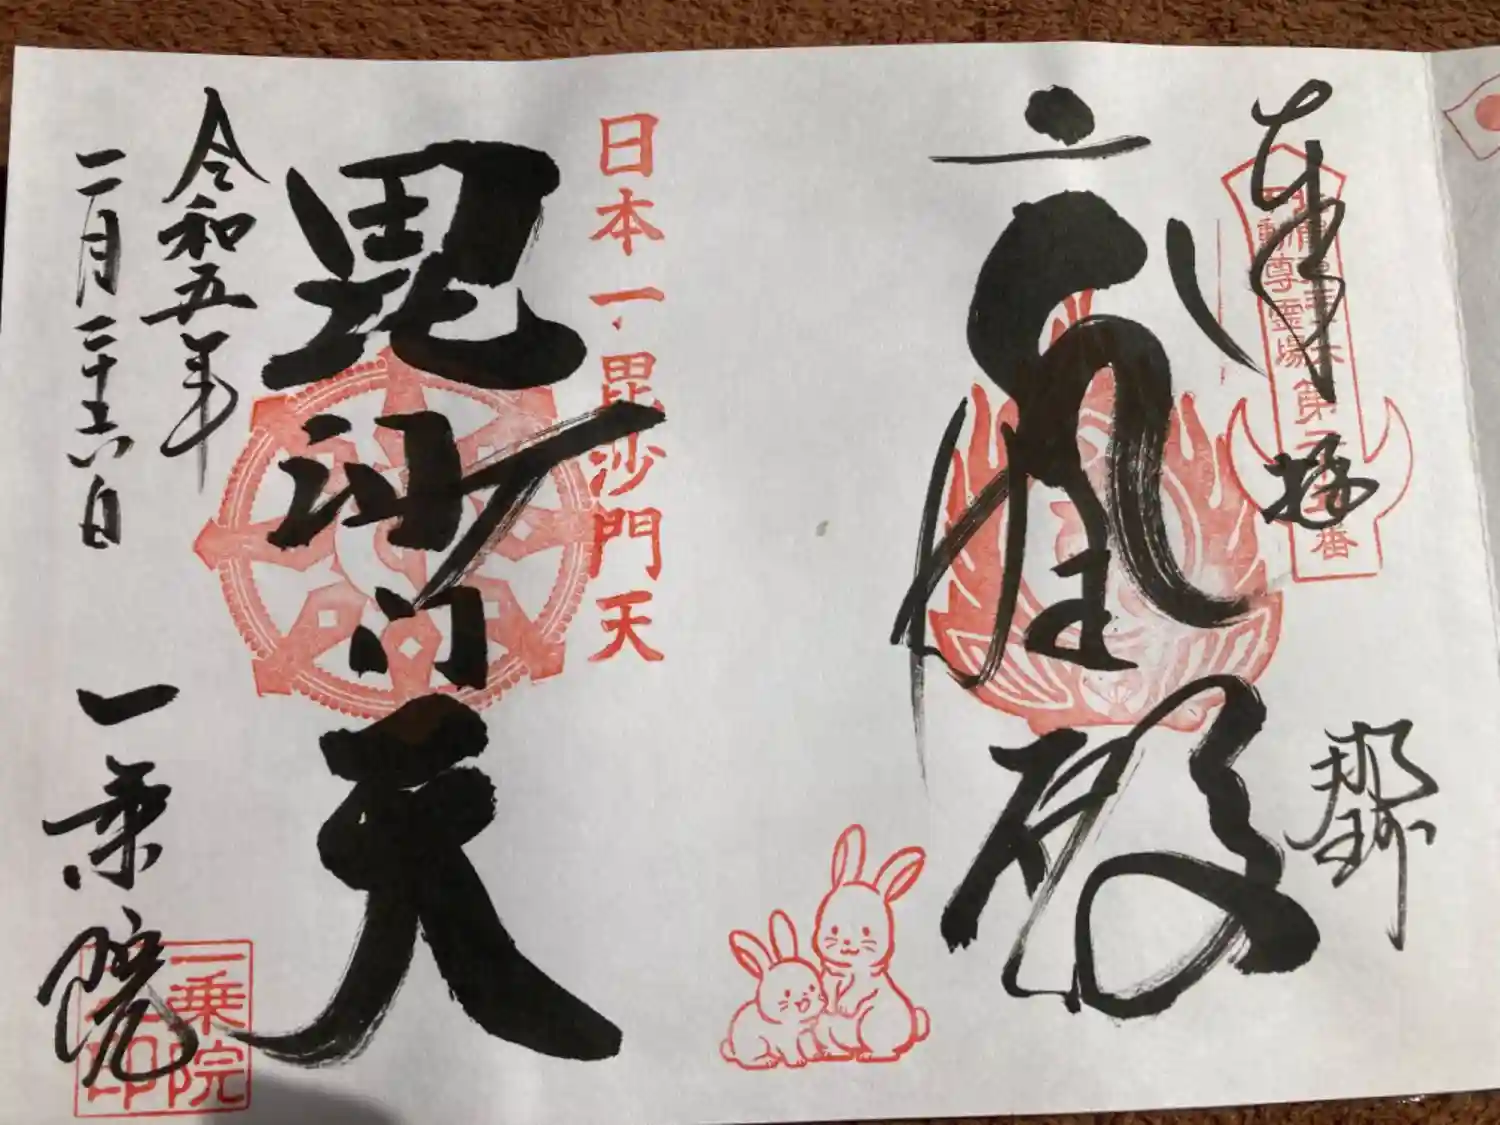 奉拝
動尊霊場
第
番
那珂
殿
日本一毘沙門天
毘沙門天
令和五年
二月二十六日
一乗院
一乗院之印